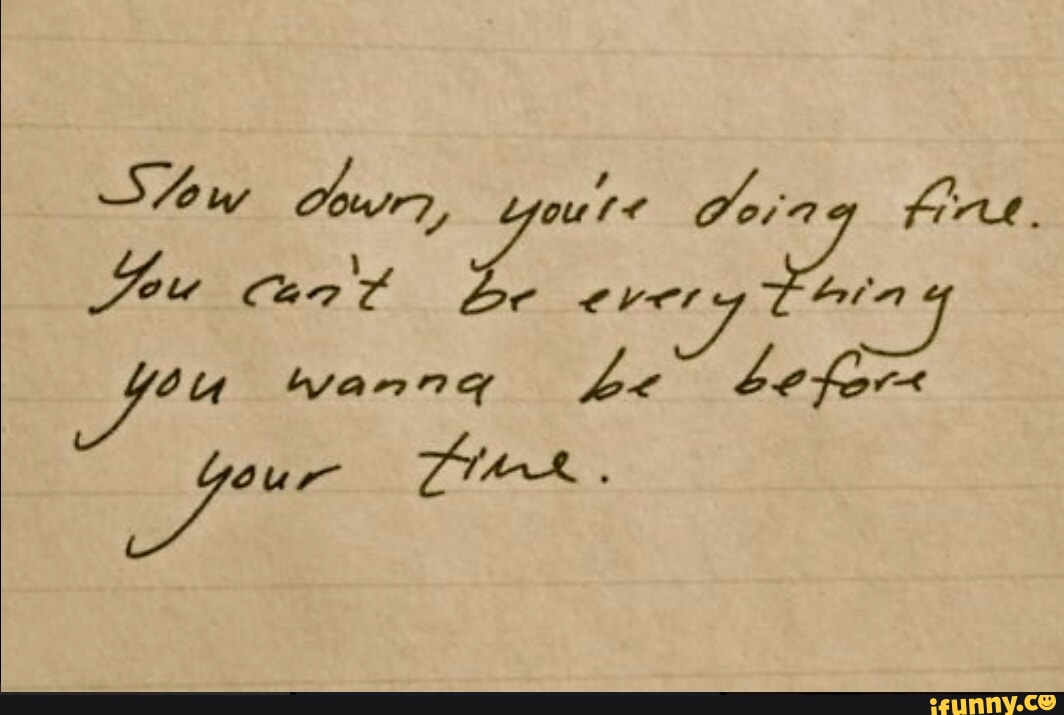 Slow down, you're doing fine.
You can't be everything
you wanna be before
your time.
ifunny.co